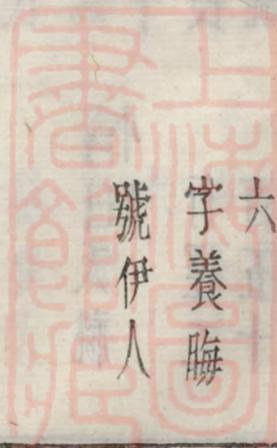 六
字養晦
號伊人
上海圖書館藏